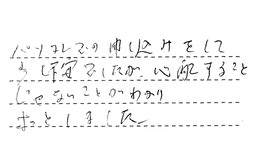 パソコンでの申し込みをして
う 不安でしたが、心配すること
じゃないことがわかり
ほっとしました